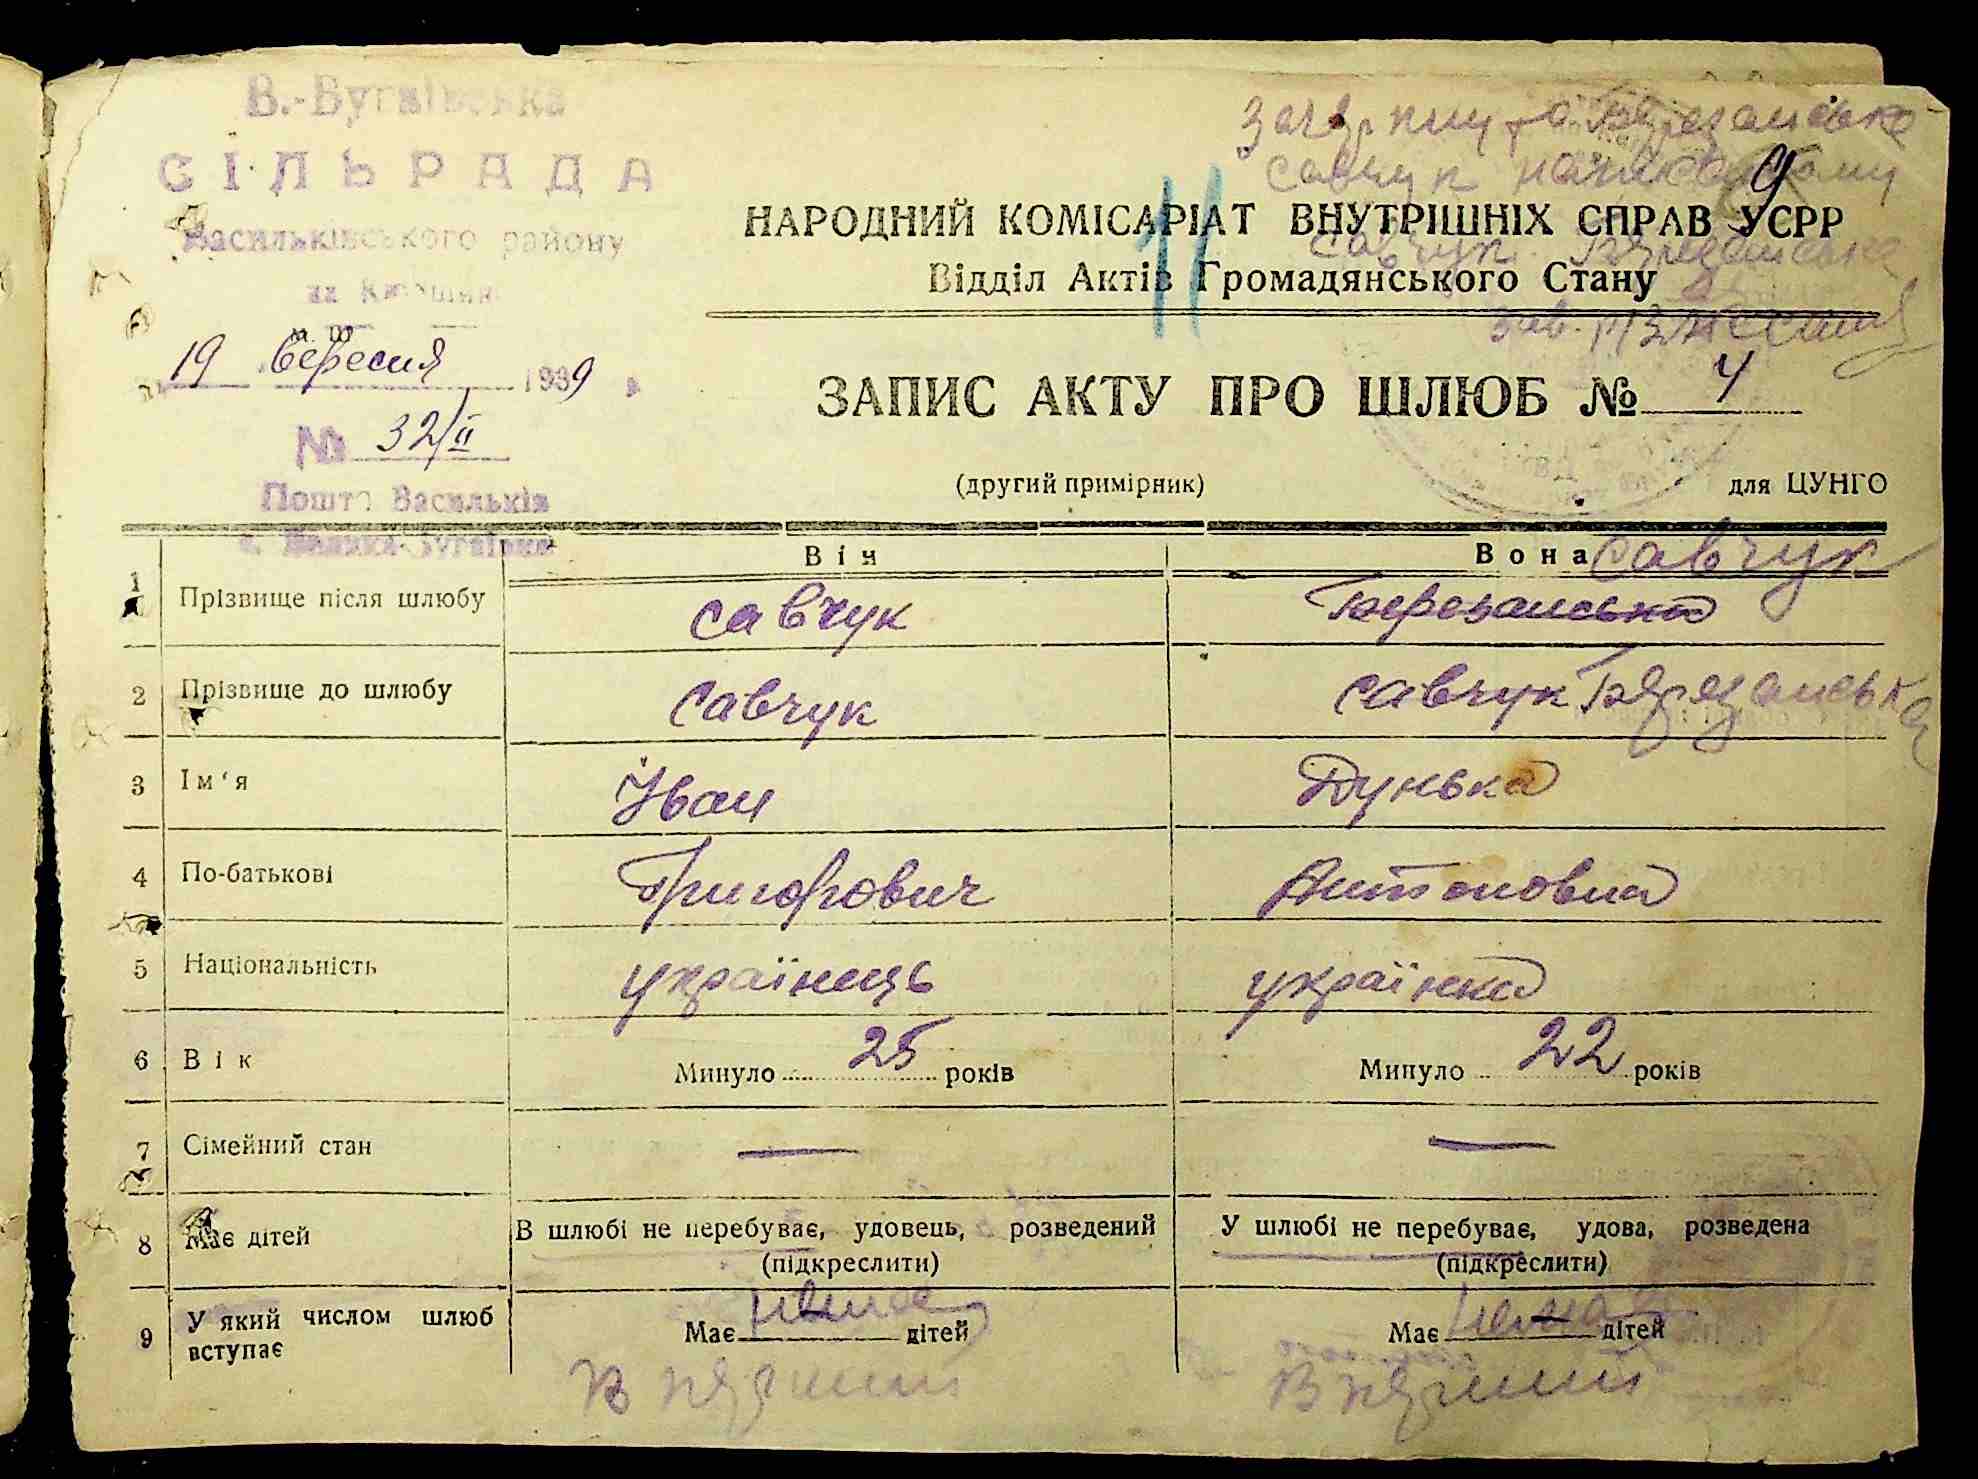 В.-Бугаївська
СІЛЬРАДА
Васильківського району
на Київщині
19 вересня 1939 р.
№ 32/ІІ
Пошта Васильків
с. Велика-Бугаївка
зачеркнуто Березанська
савчук написаному
савчук Березанська
9
11
НАРОДНИЙ КОМІСАРІАТ ВНУТРІШНІХ СПРАВ УСРР
Відділ Актів Громадянського Стану
ЗАПИС АКТУ ПРО ШЛЮБ № 4
(другий примірник) для ЦУНГО
Він Вона савчук
1 Прізвище після шлюбу савчук Березанська
2 Прізвище до шлюбу савчук савчук Березанська
3 Ім'я Іван Дунька
4 По-батькові Григорович Антоновна
5 Національність українець українка
6 Вік Минуло 25 років Минуло 22 років
7 Сімейний стан — —
8 Має дітей В шлюбі не перебуває, удовець, розведений У шлюбі не перебуває, удова, розведена
(підкреслити) (підкреслити)
9 У який числом шлюб вступає Має нема дітей Має нема дітей
В перший В перший